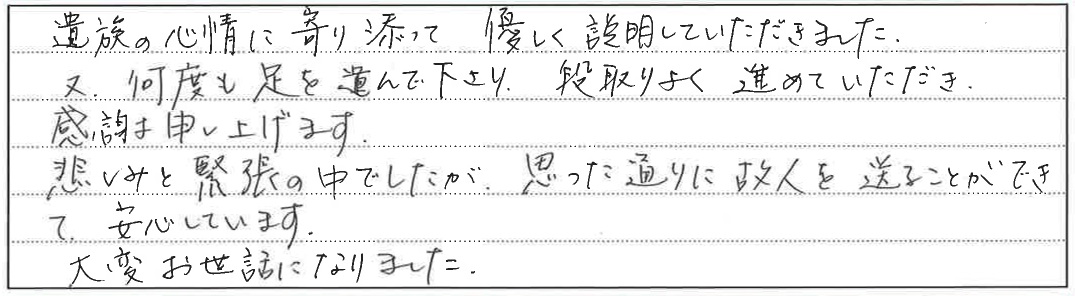 遺族の心情に寄り添って 優しく説明していただきました.
又. 何度も足を運んで下さり. 段取りよく進めていただき.
感謝申し上げます.
悲しみと緊張の中でしたが. 思った通りに故人を送ることができ
て. 安心しています.
大変お世話になりました.